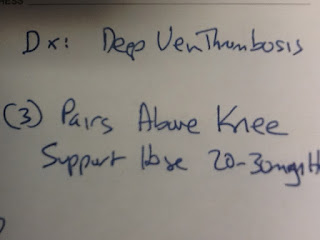 Dx: Deep Ven Thrombosis
(3) Pairs Above Knee
Support Hose 20-30mgH